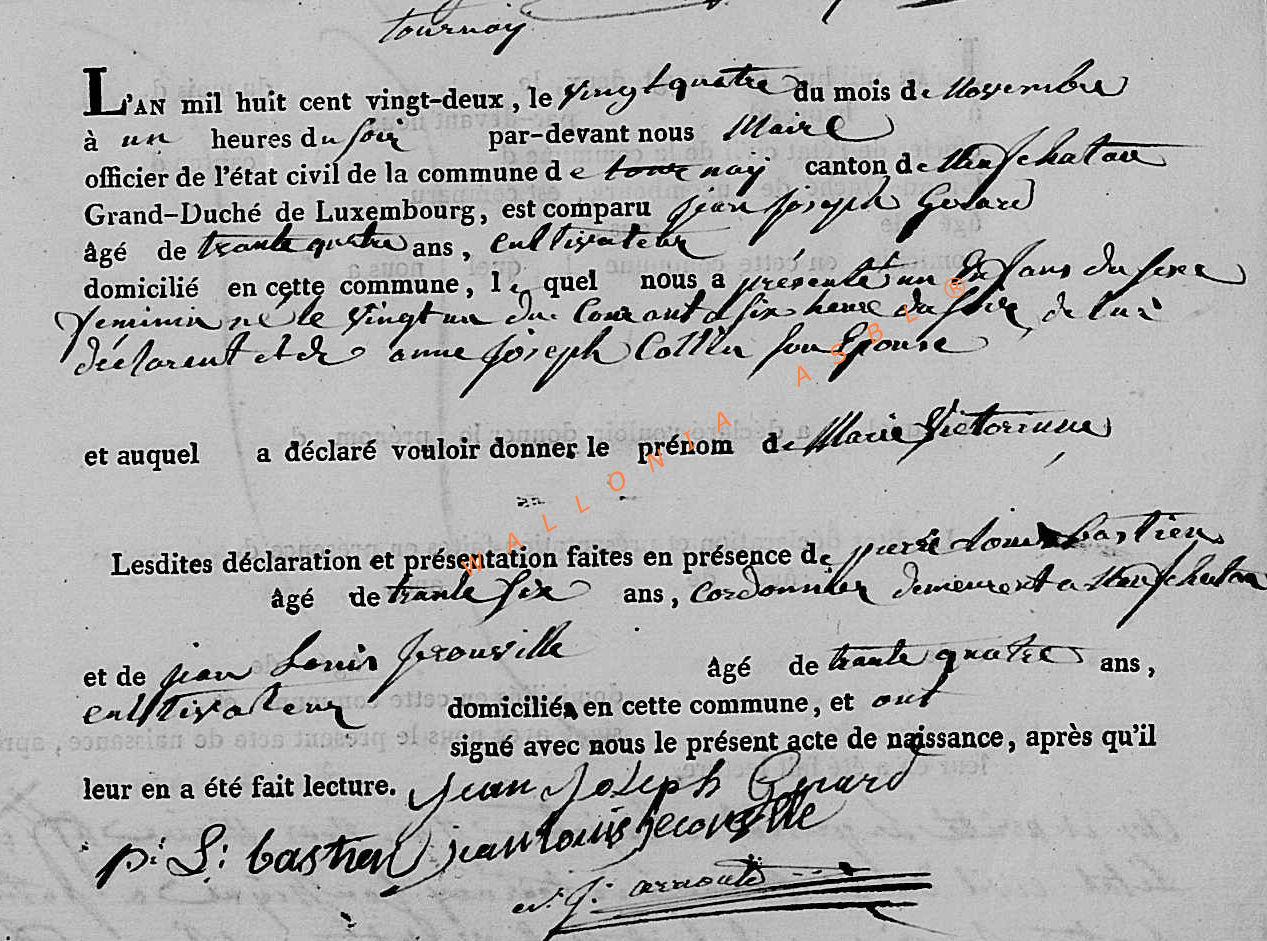 tournay
L'AN mil huit cent vingt-deux, le vingt quatre du mois de Novembre
à un heures du soir par-devant nous Maire
officier de l'état civil de la commune de tournay canton de Neufchatau
Grand-Duché de Luxembourg, est comparu jean joseph Gerard
âgé de trante quatre ans, cultivateur
domicilié en cette commune, lequel nous a présenté un Enfans du sexe
feminin né le vingt un du Courant a six heure du soir, de lui
déclarent et de anne joseph Collin son Epouse
et auquel a déclaré vouloir donner le prénom de Marie Victorinne
WALLONIA ASBL ®
Lesdites déclaration et présentation faites en présence de pierre louis bastien
âgé de trante six ans, cordonnier demeurent a Neufchatau
et de jean Louis âgé de trante quatre ans,
cultivateur domiciliés en cette commune, et ont
signé avec nous le présent acte de naissance, après qu'il
leur en a été fait lecture. jean joseph Gerard
p: L: bastien jean louis